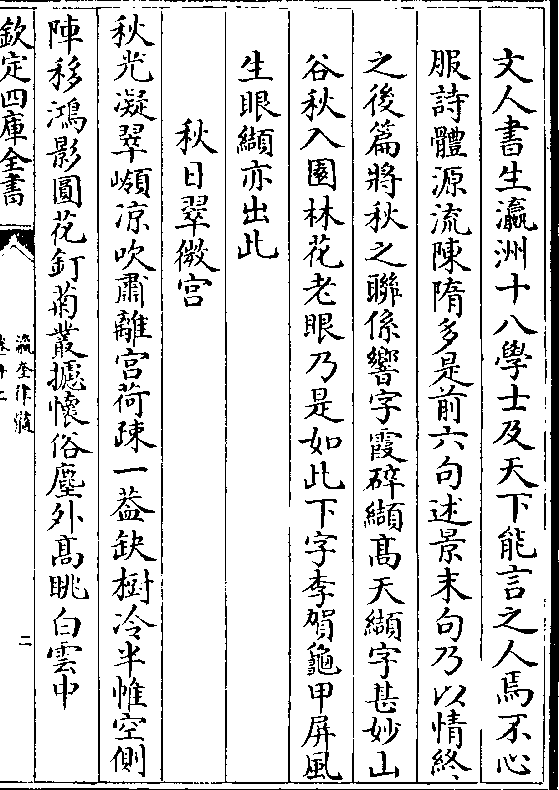 文人書生瀛洲十八學士及天下能言之人焉不心
服詩體源流陳隋多是前六句述景末句乃以情終
之後篇將秋之聯係響字霞碎纈高天纈字甚妙山
谷秋入園林花老眼乃是如此下字李賀龜甲屏風
生眼纈亦出此
秋日翠微宫
秋光凝翠嶺凉吹肅離宫荷疎一葢缺樹冷半帷空側
陣移鴻影圓花釘菊叢攄懷俗塵外高眺白雲中
欽定四庫全書
瀛奎律髓
二